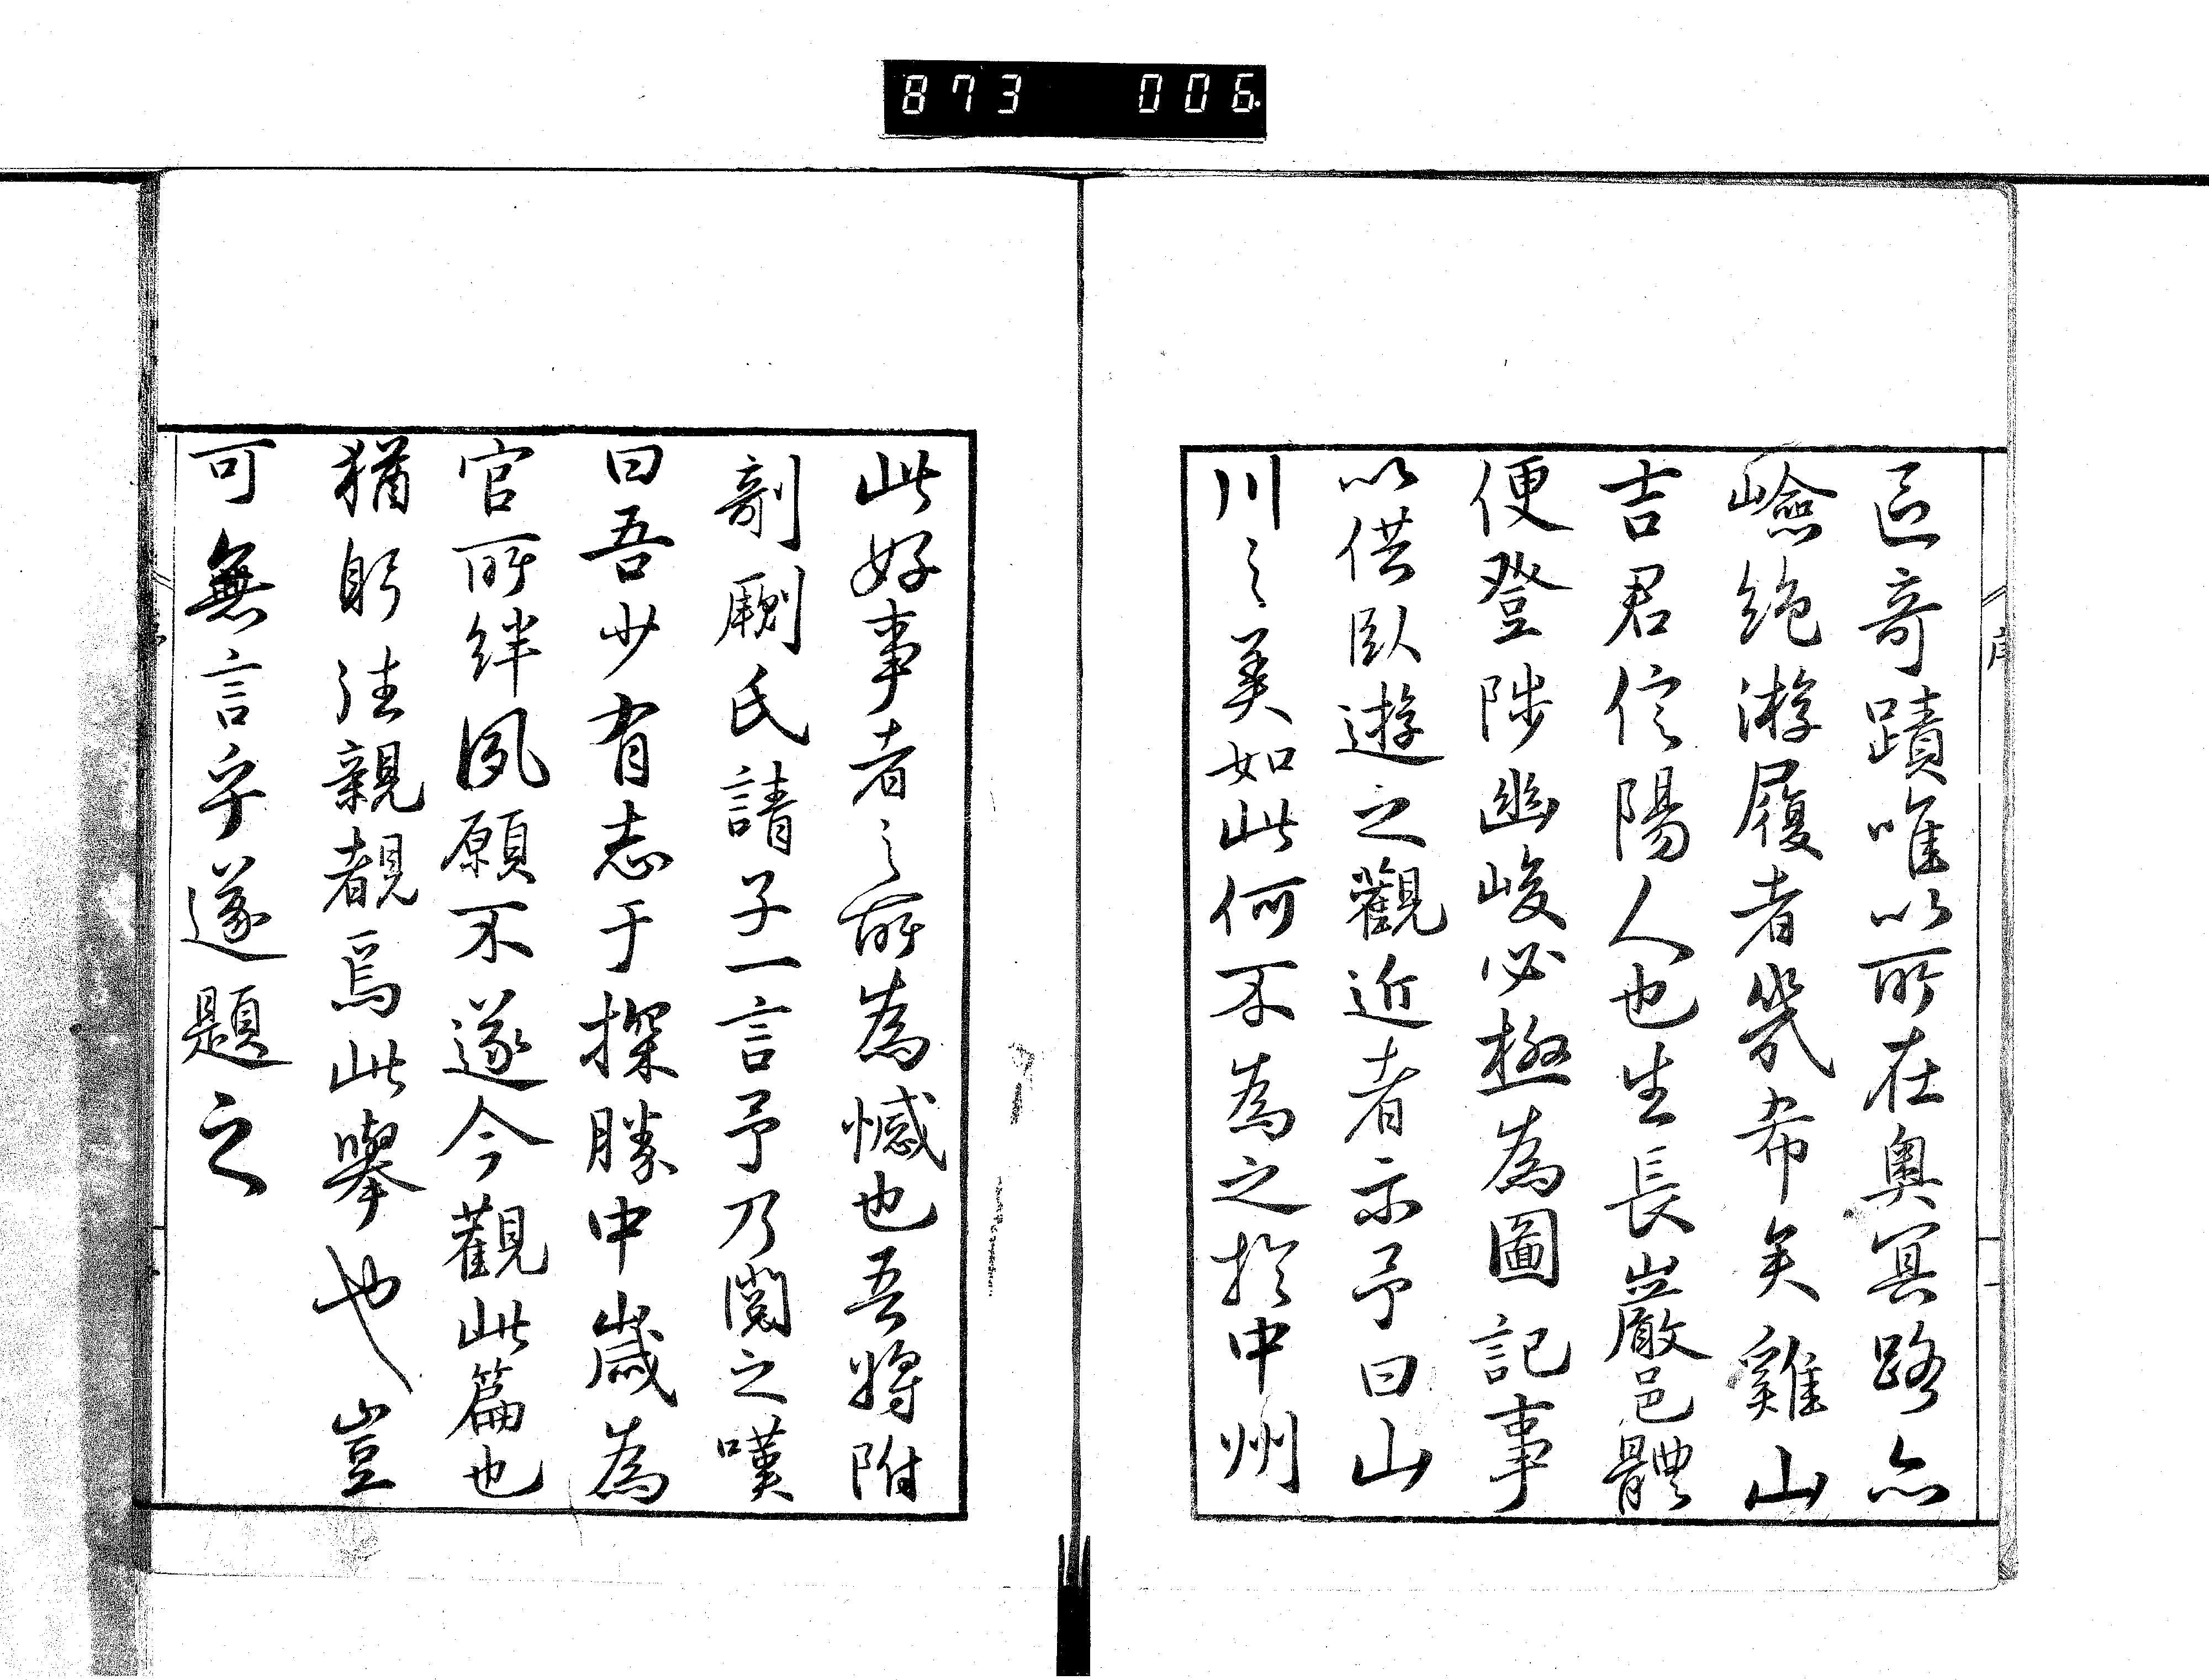 873 006
序
區奇蹟唯以所在奥冥路亦
嶮絶游履者幾希矣雞山
吉君信陽人也生長巖邑體
便登陟幽峻必極為圖記事
以供臥遊之觀近者示予曰山
川之美如此何不為之於中州
此好事者之所為憾也吾將附
剞劂氏請子一言予乃閲之嘆
曰吾少有志于探勝中歳為
官所絆夙願不遂今觀此篇也
猶躬往親覩焉此擧也豈
可無言乎遂題之